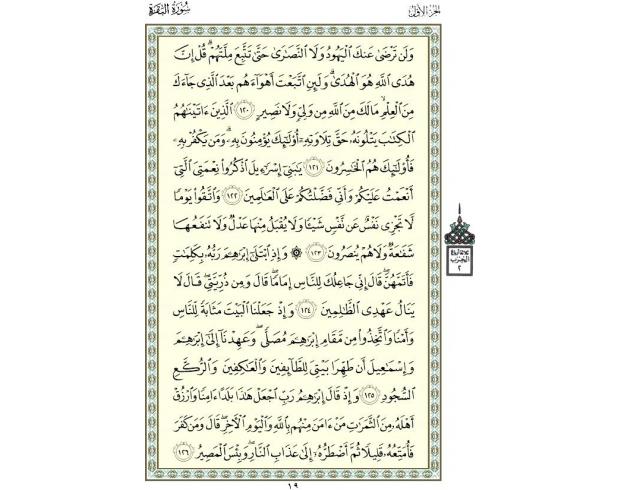 الجزء الأول
سورة البقرة
وَلَن تَرْضَىٰ عَنكَ ٱلْيَهُودُ وَلَا ٱلنَّصَـٰرَىٰ حَتَّىٰ تَتَّبِعَ مِلَّتَهُمْ ۗ قُلْ إِنَّ
هُدَى ٱللَّهِ هُوَ ٱلْهُدَىٰ ۗ وَلَئِنِ ٱتَّبَعْتَ أَهْوَآءَهُم بَعْدَ ٱلَّذِى جَآءَكَ
مِنَ ٱلْعِلْمِ ۙ مَا لَكَ مِنَ ٱللَّهِ مِن وَلِىٍّ وَلَا نَصِيرٍ ١٢٠ ٱلَّذِينَ ءَاتَيْنَـٰهُمُ
ٱلْكِتَـٰبَ يَتْلُونَهُۥ حَقَّ تِلَاوَتِهِۦٓ أُو۟لَـٰٓئِكَ يُؤْمِنُونَ بِهِۦ ۗ وَمَن يَكْفُرْ بِهِۦ
فَأُو۟لَـٰٓئِكَ هُمُ ٱلْخَـٰسِرُونَ ١٢١ يَـٰبَنِىٓ إِسْرَٰٓءِيلَ ٱذْكُرُوا۟ نِعْمَتِىَ ٱلَّتِىٓ
أَنْعَمْتُ عَلَيْكُمْ وَأَنِّى فَضَّلْتُكُمْ عَلَى ٱلْعَـٰلَمِينَ ١٢٢ وَٱتَّقُوا۟ يَوْمًا
لَّا تَجْزِى نَفْسٌ عَن نَّفْسٍ شَيْـًٔا وَلَا يُقْبَلُ مِنْهَا عَدْلٌ وَلَا تَنفَعُهَا
شَفَـٰعَةٌ وَلَا هُمْ يُنصَرُونَ ١٢٣ ۞ وَإِذِ ٱبْتَلَىٰٓ إِبْرَٰهِـۧمَ رَبُّهُۥ بِكَلِمَـٰتٍ
فَأَتَمَّهُنَّ ۖ قَالَ إِنِّى جَاعِلُكَ لِلنَّاسِ إِمَامًا ۖ قَالَ وَمِن ذُرِّيَّتِى ۖ قَالَ لَا
يَنَالُ عَهْدِى ٱلظَّـٰلِمِينَ ١٢٤ وَإِذْ جَعَلْنَا ٱلْبَيْتَ مَثَابَةً لِّلنَّاسِ
وَأَمْنًا وَٱتَّخِذُوا۟ مِن مَّقَامِ إِبْرَٰهِـۧمَ مُصَلًّى ۖ وَعَهِدْنَآ إِلَىٰٓ إِبْرَٰهِـۧمَ
وَإِسْمَـٰعِيلَ أَن طَهِّرَا بَيْتِىَ لِلطَّآئِفِينَ وَٱلْعَـٰكِفِينَ وَٱلرُّكَّعِ
ٱلسُّجُودِ ١٢٥ وَإِذْ قَالَ إِبْرَٰهِـۧمُ رَبِّ ٱجْعَلْ هَـٰذَا بَلَدًا ءَامِنًا وَٱرْزُقْ
أَهْلَهُۥ مِنَ ٱلثَّمَرَٰتِ مَنْ ءَامَنَ مِنْهُم بِٱللَّهِ وَٱلْيَوْمِ ٱلْـَٔاخِرِ ۖ قَالَ وَمَن كَفَرَ
فَأُمَتِّعُهُۥ قَلِيلًا ثُمَّ أَضْطَرُّهُۥٓ إِلَىٰ عَذَابِ ٱلنَّارِ ۖ وَبِئْسَ ٱلْمَصِيرُ ١٢٦
الحزب
٢
١٩